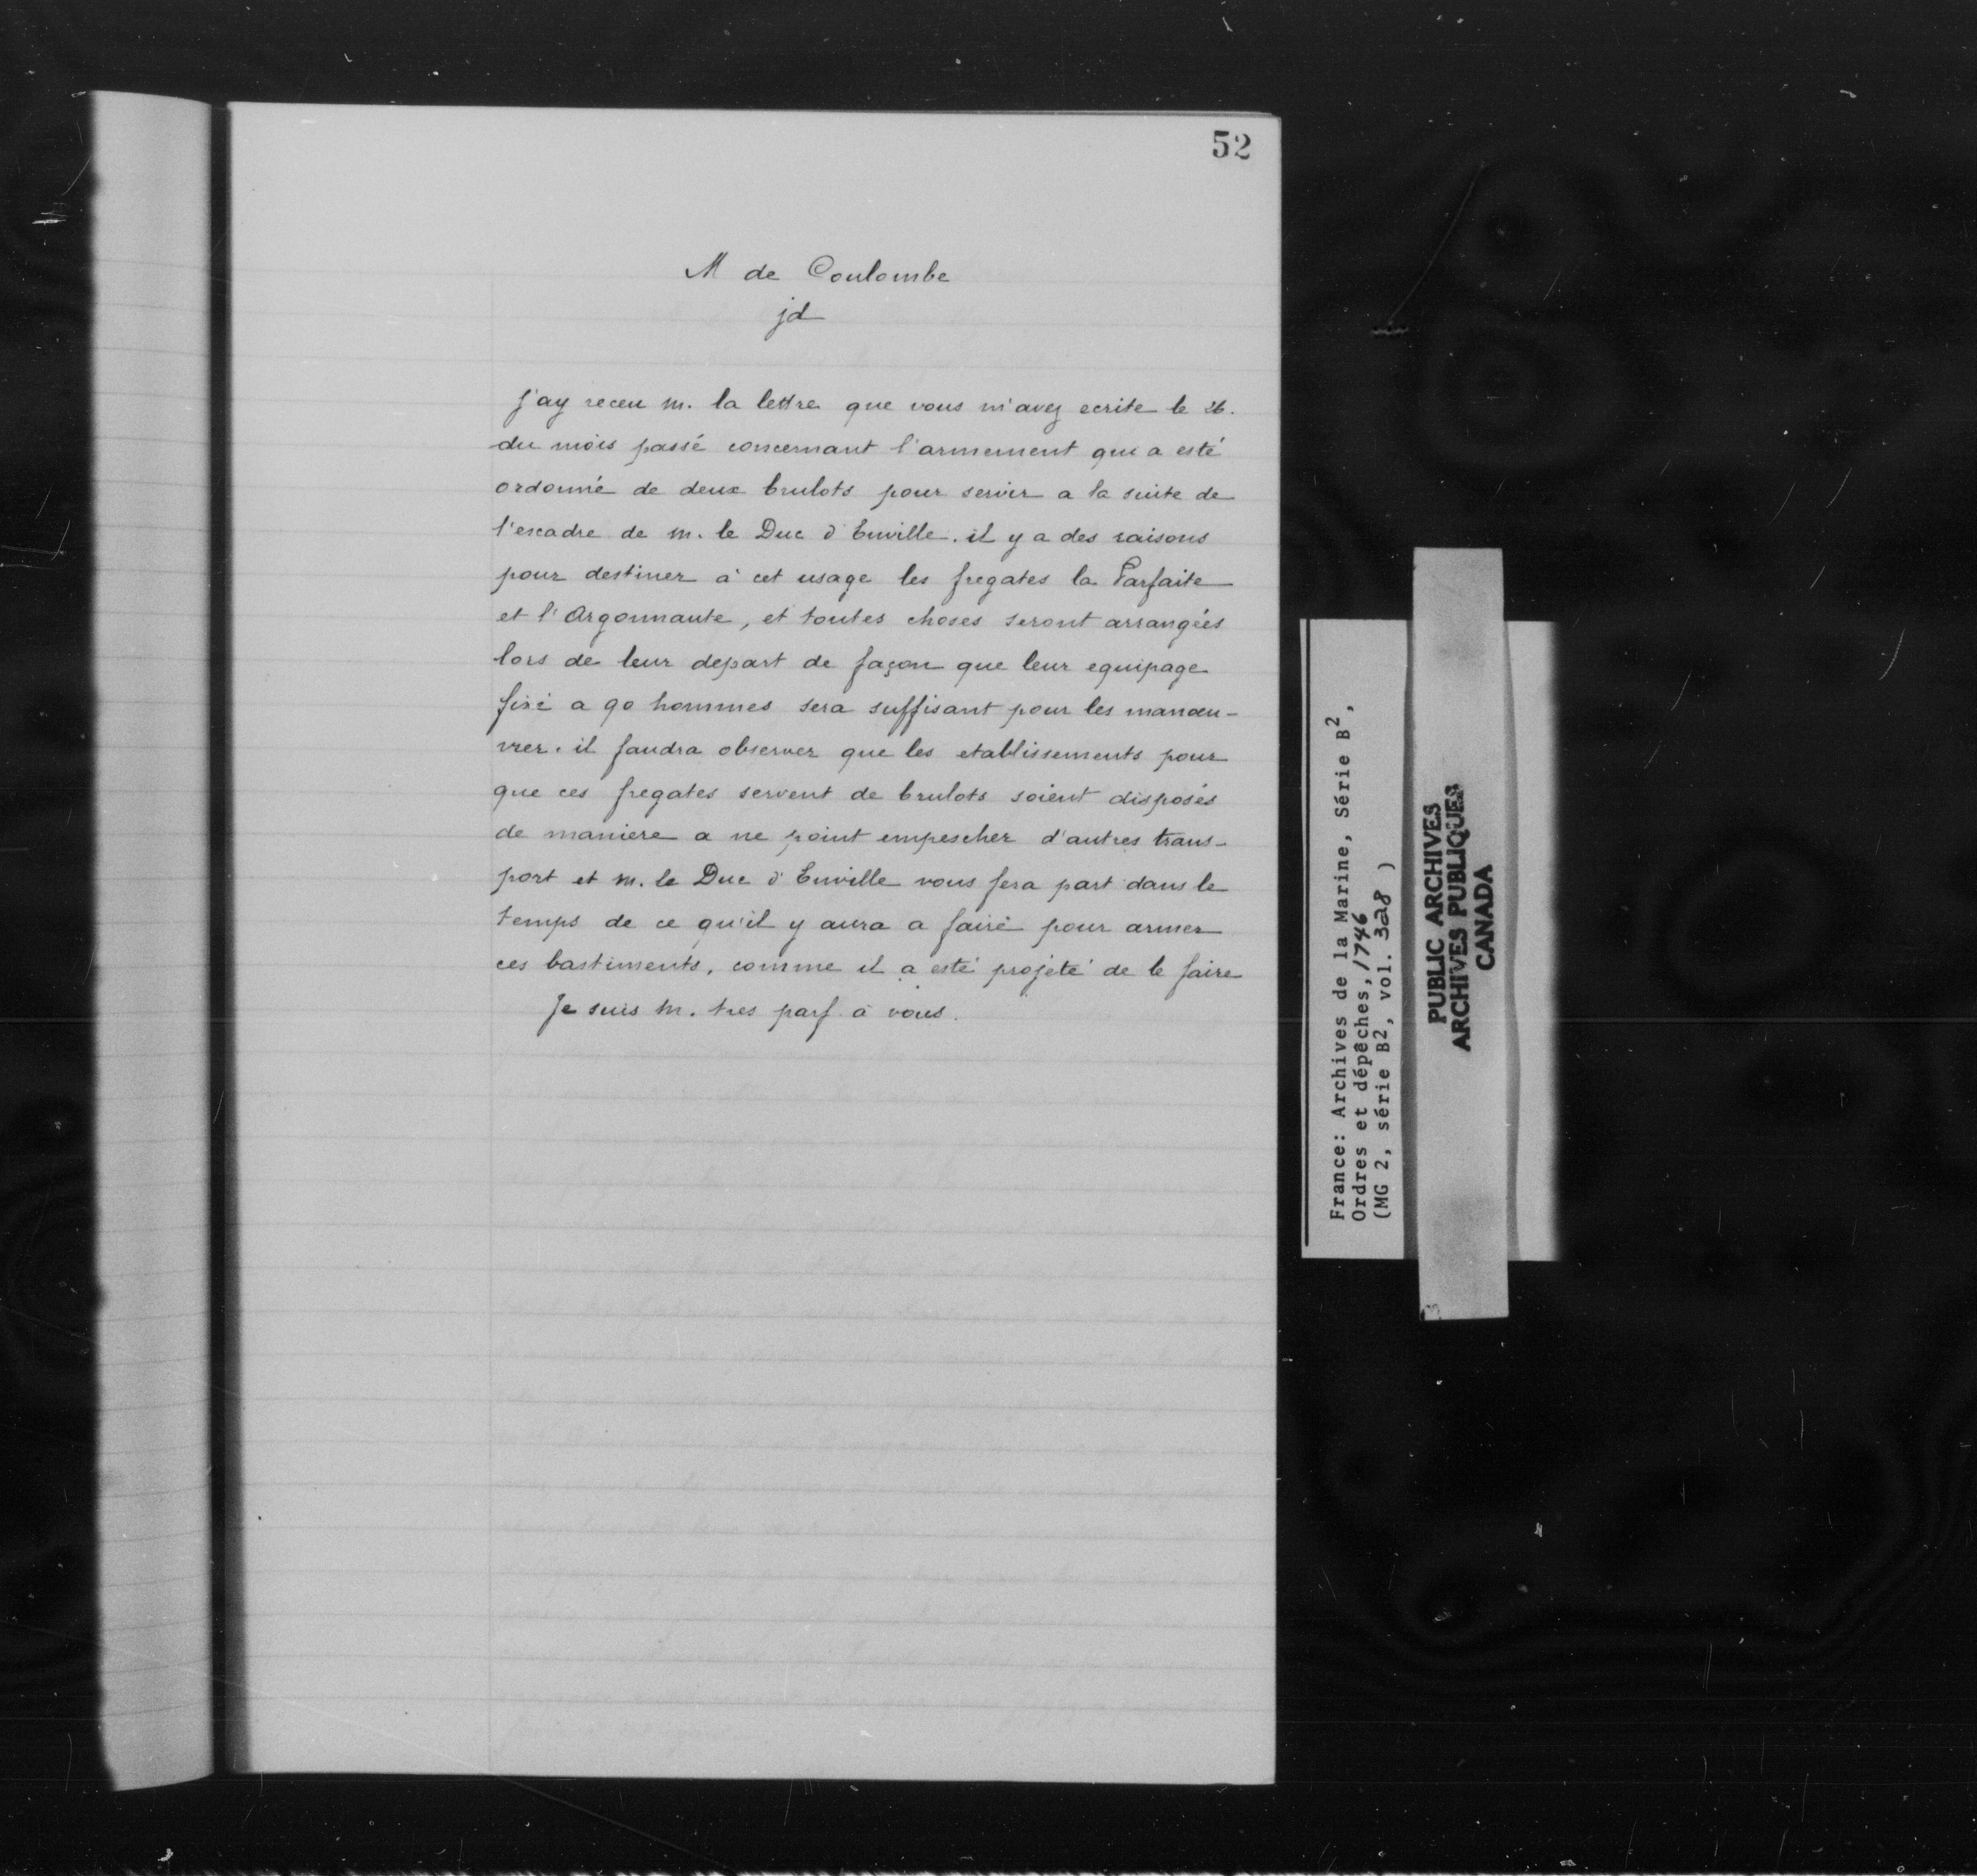 52
M de Coulombe
jd
j'ay receu m. la lettre que vous m'avez ecrite le 26.
du mois passé concernant l'armement qui a esté
ordonné de deux brulots pour servir a la suite de
l'escadre de m. le Duc d'Enville. il y a des raisons
pour destiner à cet usage les fregates la Parfaite
et l'Argonnaute, et toutes choses seront arrangées
lors de leur depart de façon que leur equipage
fixé a 90 hommes sera suffisant pour les manoeu-
vrer. il faudra observer que les etablissements pour
que ces fregates servent de brulots soient disposés
de maniere a ne point empescher d'autres trans-
port et m. le Duc d'Enville vous fera part dans le
temps de ce qu'il y aura a faire pour armer
ces bastiments, comme il a esté projeté de le faire
Je suis m. tres parf. à vous.
France: Archives de la Marine, Série B2,
Ordres et dépêches, 1746
(MG 2, série B2, vol. 328 )
PUBLIC ARCHIVES
ARCHIVES PUBLIQUES
CANADA